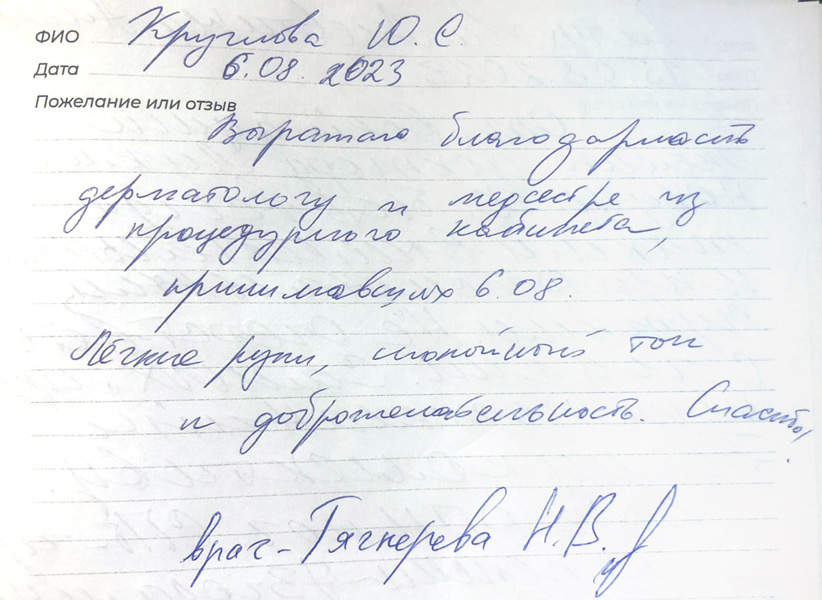 ФИО Круглова Ю. С.
Дата 6.08.2023
Пожелание или отзыв
Выражаю благодарность
дерматологу и медсестре из
процедурного кабинета,
принимавших 6.08.
Лёгкие руки, спокойный тон
и доброжелательность. Спасибо!
врач - Тягнерева Н.В.